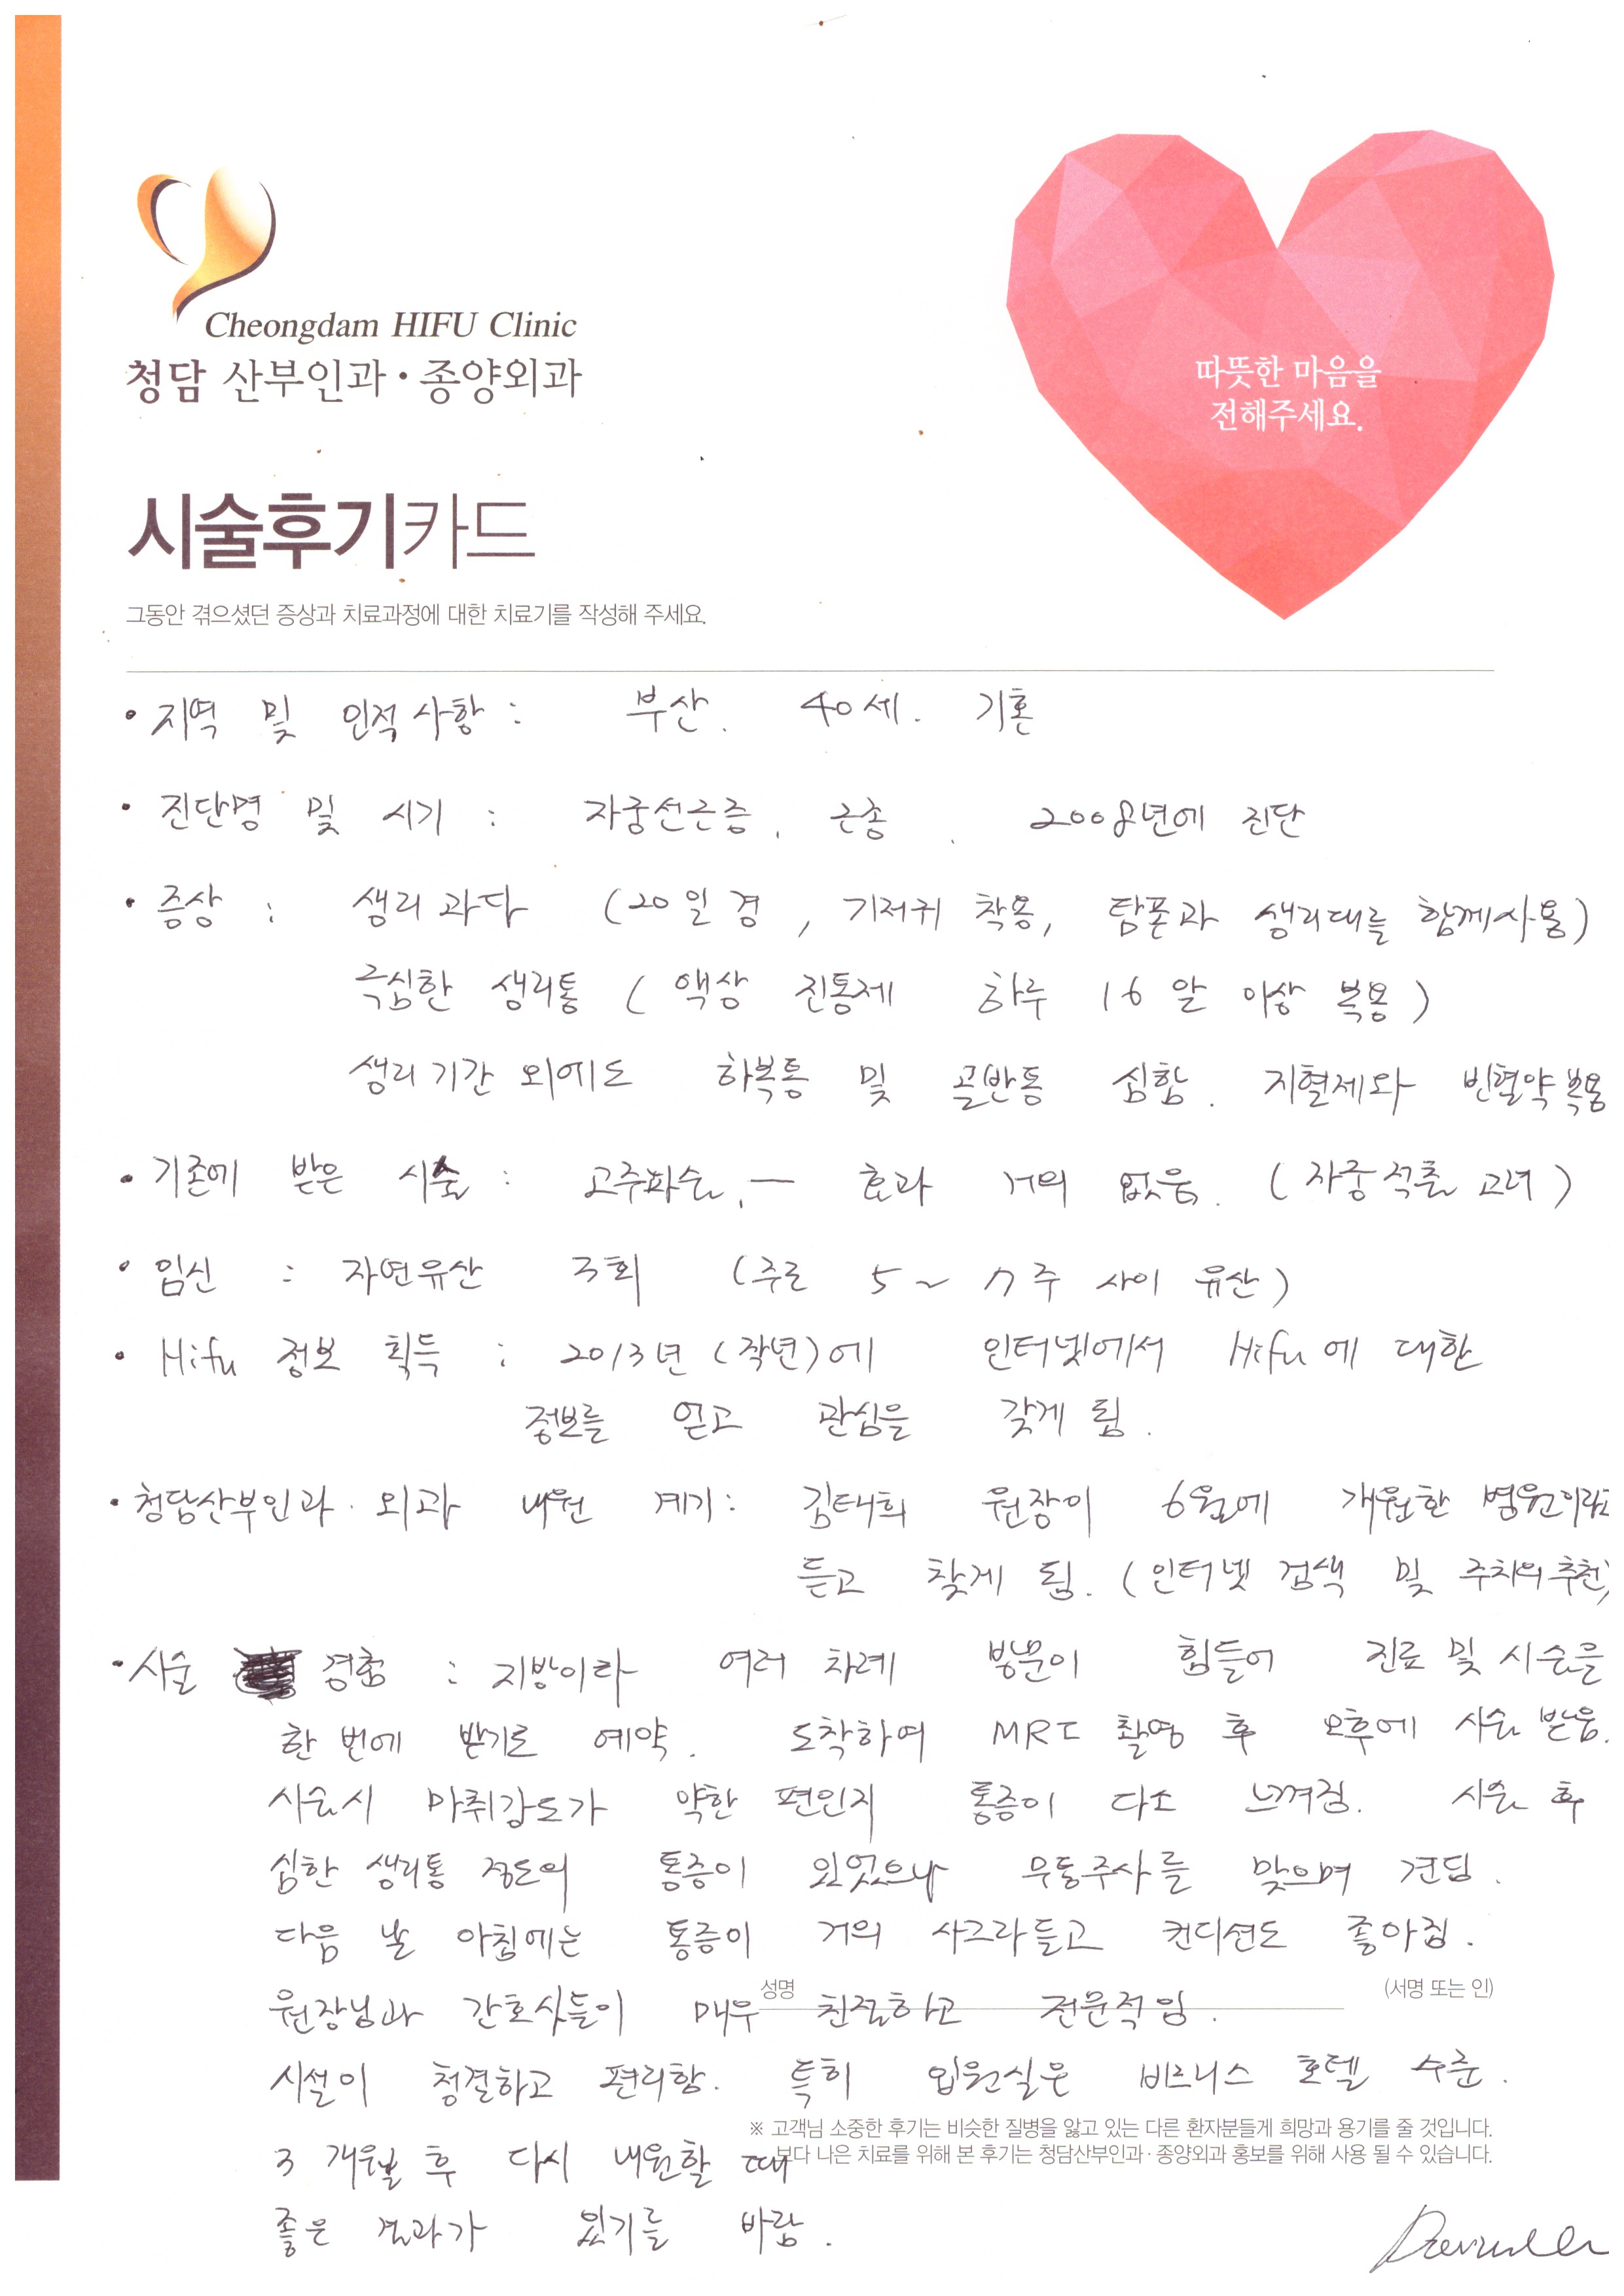 Cheongdam HIFU Clinic
청담 산부인과·종양외과
따뜻한 마음을
전해주세요.
시술후기카드
그동안 겪으셨던 증상과 치료과정에 대한 치료기를 작성해 주세요.
• 지역 및 인적사항 : 부산. 40세. 기혼
• 진단명 및 시기 : 자궁선근증, 근종, 2008년에 진단
• 증상 : 생리과다 (20일경, 기저귀 착용, 탐폰과 생리대를 함께사용)
극심한 생리통 (액상 진통제 하루 16알 이상 복용)
생리기간 외에도 하복통 및 골반통 심함. 지혈제와 빈혈약복용
• 기존에 받은 시술 : 고주파술, — 효과 거의 없음. (자궁적출 고려)
• 임신 : 자연유산 3회 (주로 5~7주 사이 유산)
• Hifu 정보 획득 : 2013년(작년)에 인터넷에서 Hifu에 대한
정보를 얻고 관심을 갖게 됨.
• 청담산부인과·외과 내원 계기: 김태희 원장이 6월에 개원한 병원이라고
듣고 찾게 됨. (인터넷 검색 및 주치의추천)
• 시술 경험 : 지방이라 여러 차례 방문이 힘들어 진료 및 시술을
한 번에 받기로 예약. 도착하여 MRI 촬영 후 오후에 시술 받음.
시술시 마취강도가 약한 편인지 통증이 다소 느껴짐. 시술 후
심한 생리통 정도의 통증이 있었으나 무통주사를 맞으며 견딤.
다음 날 아침에는 통증이 거의 사그라들고 컨디션도 좋아짐.
성명 (서명 또는 인)
원장님과 간호사들이 매우 친절하고 전문적임.
시설이 청결하고 편리함. 특히 입원실은 비즈니스 호텔 수준.
※ 고객님 소중한 후기는 비슷한 질병을 앓고 있는 다른 환자분들게 희망과 용기를 줄 것입니다.
보다 나은 치료를 위해 본 후기는 청담산부인과·종양외과 홍보를 위해 사용 될 수 있습니다.
3개월 후 다시 내원할 때
좋은 결과가 있기를 바람.